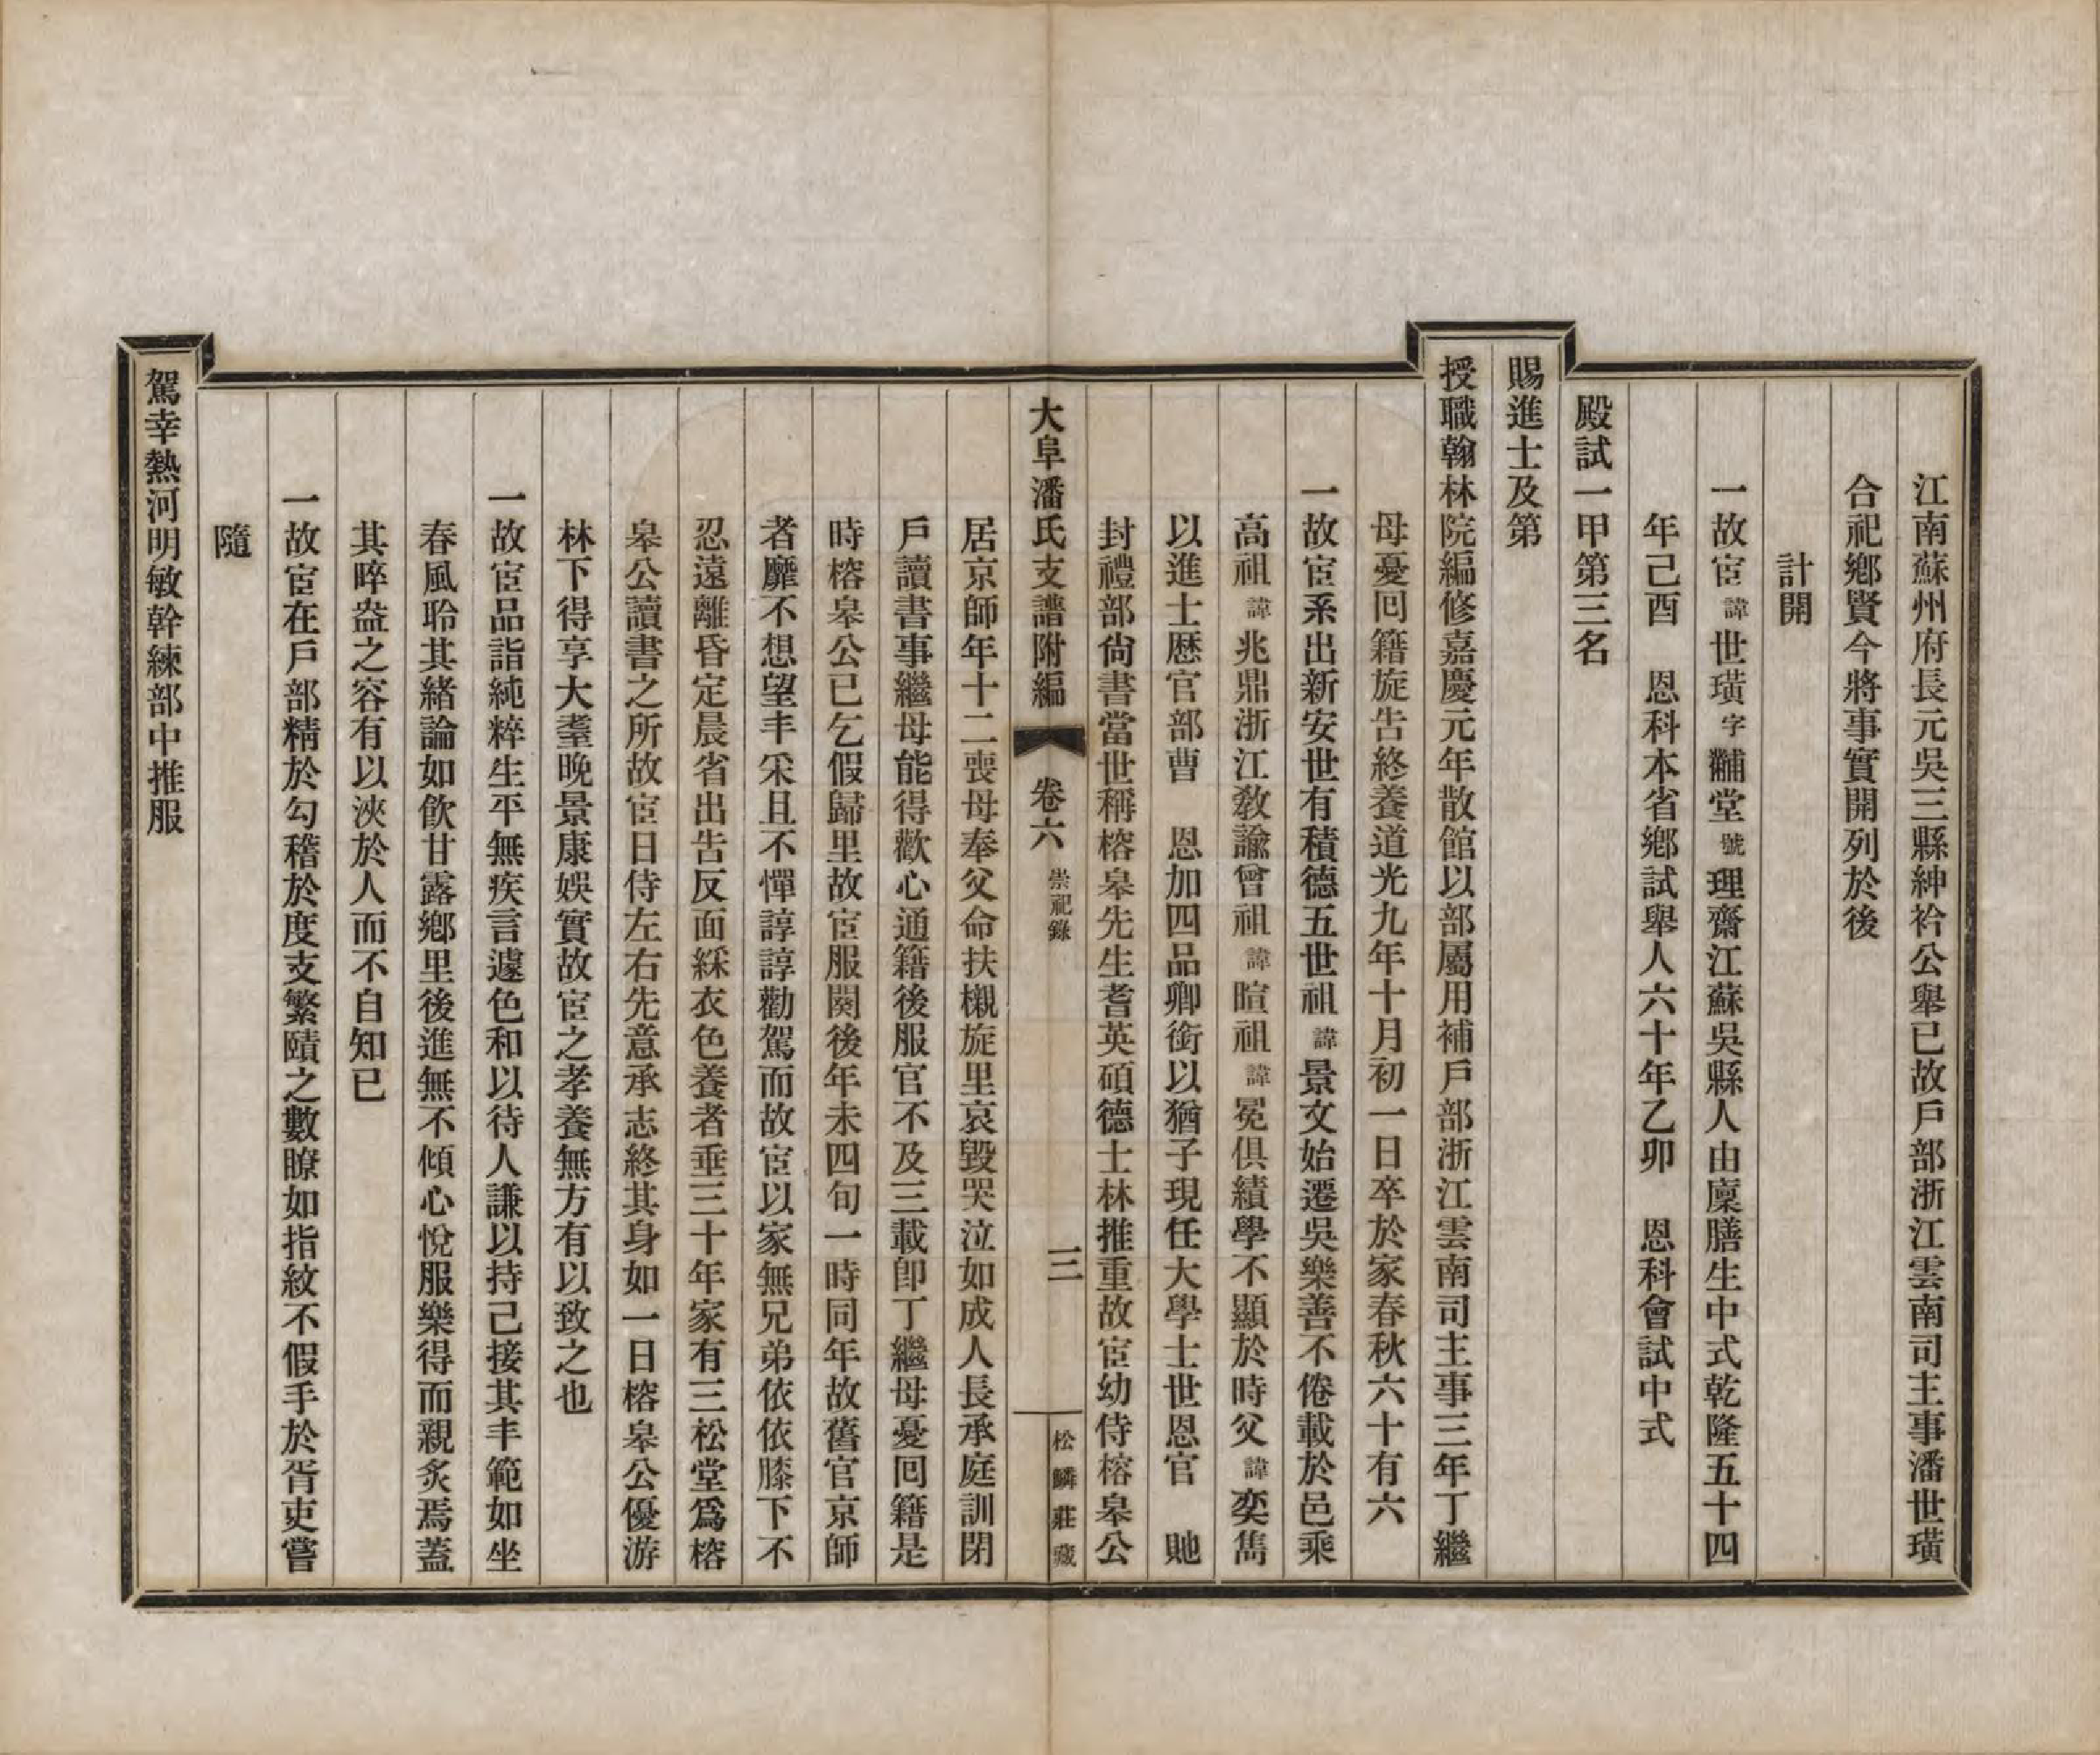 江南蘇州府長元吳三縣紳衿公舉已故戶部浙江雲南司主事潘世璜
合祀鄉賢今將事實開列於後
計開
一故宦諱世璜字黼堂號理齋江蘇吳縣人由廩膳生中式乾隆五十四
年己酉　恩科本省鄉試舉人六十年乙卯　恩科會試中式
殿試一甲第三名
賜進士及第
授職翰林院編修嘉慶元年散館以部屬用補戶部浙江雲南司主事三年丁繼
母憂囘籍旋告終養道光九年十月初一日卒於家春秋六十有六
一故宦系出新安世有積德五世祖諱景文始遷吳樂善不倦載於邑乘
高祖諱兆鼎浙江敎諭曾祖諱暄祖諱冕俱績學不顯於時父諱奕雋
以進士歷官部曹　恩加四品卿銜以猶子現任大學士世恩官　貤
封禮部尚書當世稱榕皋先生耆英碩德士林推重故宦幼侍榕皋公
大阜潘氏支譜附編　卷六　崇祀錄　三　松鱗莊藏
居京師年十二喪母奉父命扶櫬旋里哀毀哭泣如成人長承庭訓閉
戶讀書事繼母能得歡心通籍後服官不及三載卽丁繼母憂囘籍是
時榕皋公已乞假歸里故宦服闋後年未四旬一時同年故舊官京師
者靡不想望丰采且不憚諄諄勸駕而故宦以家無兄弟依依膝下不
忍遠離昏定晨省出告反面綵衣色養者垂三十年家有三松堂爲榕
皋公讀書之所故宦日侍左右先意承志終其身如一日榕皋公優游
林下得享大耋晚景康娛實故宦之孝養無方有以致之也
一故宦品詣純粹生平無疾言遽色和以待人謙以持己接其丰範如坐
春風聆其緒論如飮甘露鄉里後進無不傾心悅服樂得而親炙焉蓋
其睟盎之容有以浹於人而不自知已
一故宦在戶部精於勾稽於度支繁賾之數瞭如指紋不假手於胥吏嘗
隨
駕幸熱河明敏幹練部中推服